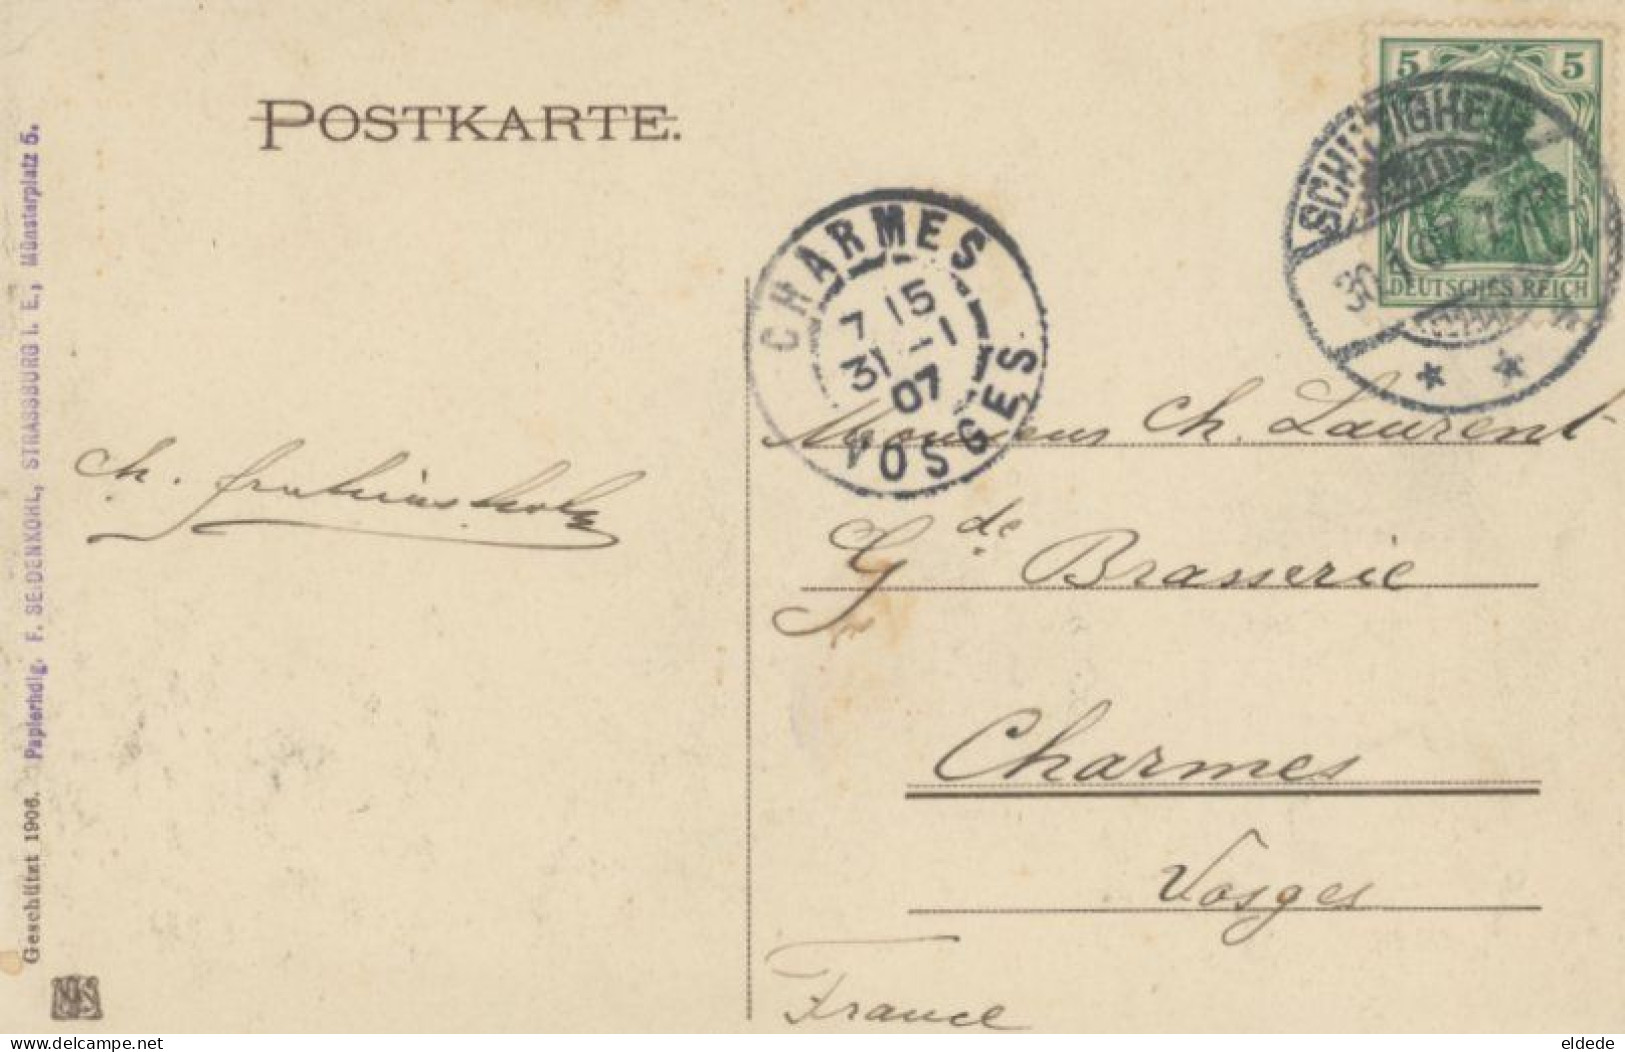 POSTKARTE.
5 5
SCHILTIGHEIM
30. 1 07. 7
DEUTSCHES REICH
CHARMES
7 15
31 - 1
07
VOSGES
Monsieur Ch. Laurent
Gde Brasserie
Charmes
Vosges
France
Ch.
Geschützt 1906. Papierhdlg. F. SEIDENKOHL, STRASSBURG i. E., Münsterplatz 5.
eldede